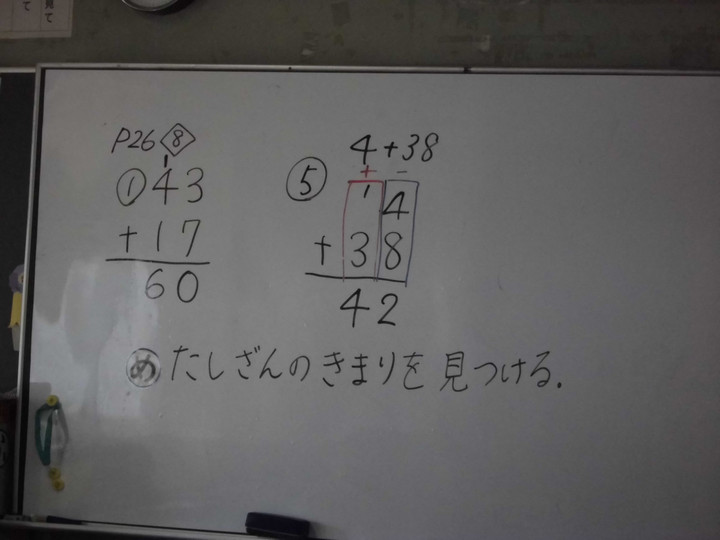 P26 8
1
① 43
+ 17
60
4+38
十 一
⑤ 1 4
+ 38
42
め たしざんのきまりを見つける.